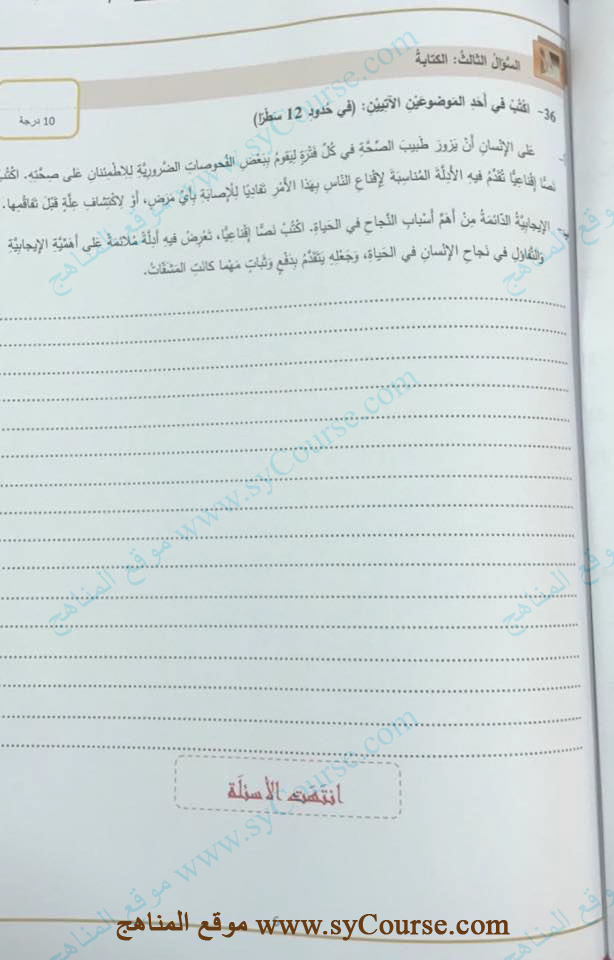 السُّؤالُ الثَّالِثُ: الكِتابَةُ
10 درجة
36- اكْتُبْ في أَحَدِ المَوضوعَيْنِ الآتِيَيْنِ: (في حُدودِ 12 سَطْرًا)
عَلى الإِنْسانِ أَنْ يَزورَ طَبيبَ الصِّحَّةِ في كُلِّ فَتْرَةٍ لِيَقومَ بِبَعْضِ الفُحوصاتِ الضَّرورِيَّةِ لِلاطْمِئنانِ عَلى صِحَّتِهِ. اكْتُبْ
نَصًّا إِقْناعِيًّا تُقَدِّمُ فيهِ الأَدِلَّةَ المُناسِبَةَ لِإِقْناعِ النّاسِ بِهَذا الأَمْرِ تَفادِيًا لِلْإِصابَةِ بِأَيِّ مَرَضٍ، أَوْ لِاكْتِشافِ عِلَّةٍ قَبْلَ تَفاقُمِها.
ب- الإِيجابِيَّةُ الدَّائِمَةُ مِنْ أَهَمِّ أَسْبابِ النَّجاحِ في الحَياةِ. اكْتُبْ نَصًّا إِقْناعِيًّا، تَعْرِضُ فيهِ أَدِلَّةً مُلائمَةً عَلى أَهَمِّيَّةِ الإِيجابِيَّةِ
وَالتَّفاؤُلِ في نَجاحِ الإِنْسانِ في الحَياةِ، وَجَعْلِهِ يَتَقَدَّمُ بِدَفْعٍ وَثَباتٍ مَهْما كانَتِ المَشَقّاتُ.
انتَهَت الأسئلَة
موقع المناهج www.syCourse.com
موقع المناهج www.syCourse.com
موقع المناهج www.syCourse.com
موقع المناهج www.syCourse.com